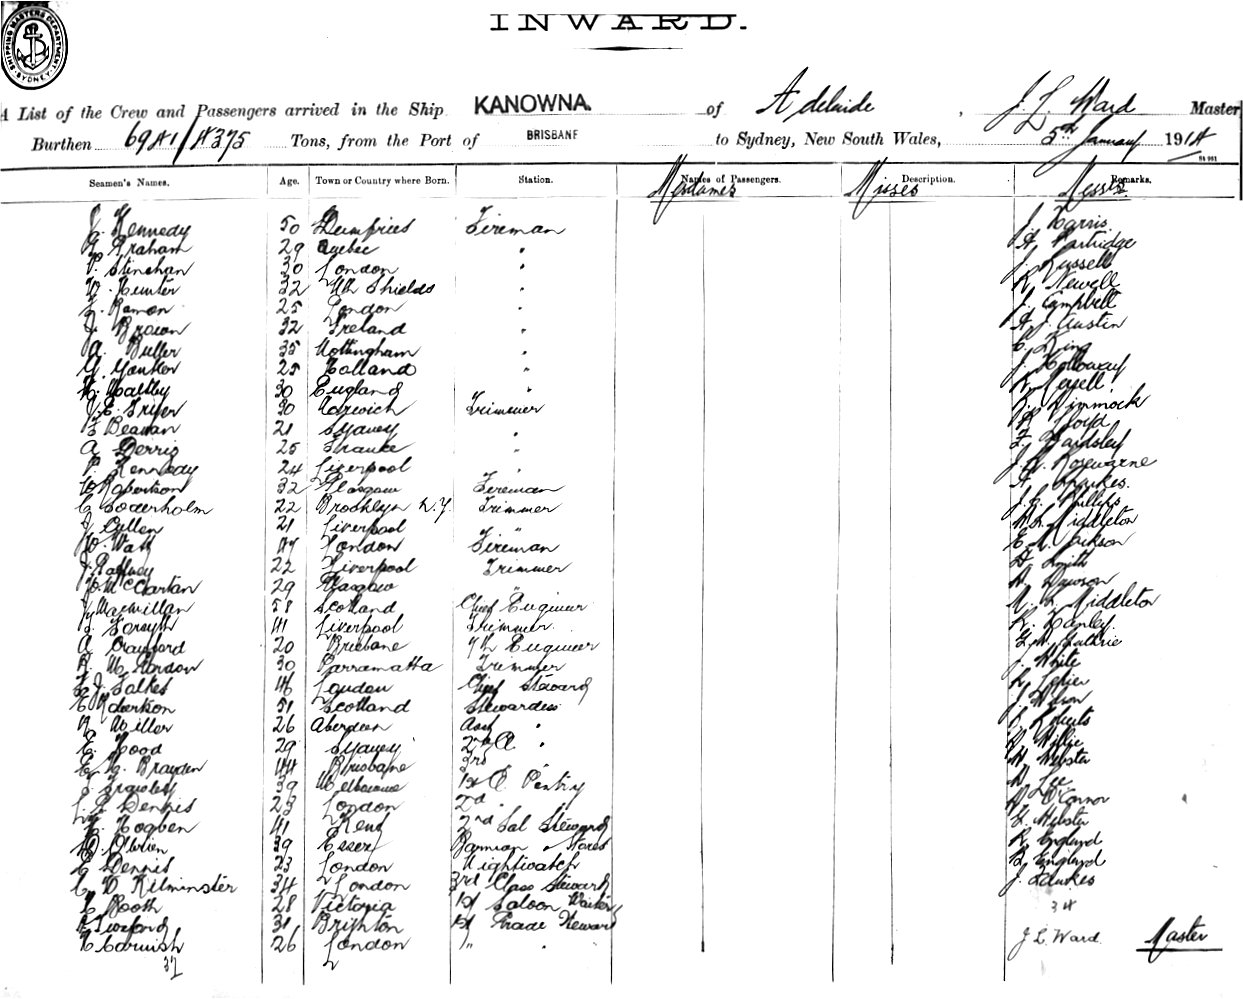 INWARD.
SHIPPING MASTERS DEPARTMENT SYDNEY
A List of the Crew and Passengers arrived in the Ship KANOWNA. of Adelaide, J. L. Ward Master
Burthen 6941/4375 Tons, from the Port of BRISBANE to Sydney, New South Wales, 5th January 1914
Seamen's Names. Age. Town or Country where Born. Station. Names of Passengers. Description. Remarks.
Mesdames Misses Messrs
J. Kennedy 50 Dumfries Fireman J. Harris
G. Graham 29 Quebec " A. Partridge
P. Stinehan 30 London " J. Russell
W. Hunter 32 Nth Shields " R. Newell
Ramon 25 London " J. Campbell
J. Brown 32 Ireland " A. J. Austin
A. Butler 35 Nottingham " C. King
G. Yanker 25 Holland " J. Holloway
H. Maltby 30 England "
J. E. Fryer 30 Harwich Trimmer Dimmock
F. Beavan 21 Sydney " Lloyd
A. 25 " Bardsley
P. Kennedy 24 Liverpool " J. A. Rosewarne
W. Robertson 32 Glasgow Fireman
C. Soderholm 22 Brooklyn N.Y. Trimmer J. G. Phillips
J. Cullen 21 Liverpool " Middleton
W. Watt 47 London Fireman Jackson
J. Gaffney 22 Liverpool Trimmer Smith
W. McClartan 29 Glasgow " Dawson
J. Macmillan 58 Scotland Chief Engineer Middleton
Forsyth 41 Liverpool Trimmer Hanley
A. Crawford 20 Brisbane 7th Engineer Guthrie
R. W. Gordon 30 Parramatta Trimmer J. White
J. Falkes 46 London Chief Steward
51 Scotland Stewardess J. Wilson
Miller 26 Aberdeen Asst " Roberts
E. Hood 29 Sydney 2nd A. " Willie
E. Brayden 44 Brisbane 3rd " Webster
Frawley 39 Melbourne 1st C. Pantry Lee
Dennis 23 London 2nd " O'Connor
Hogben 41 Kent 2nd Sal Steward Webster
O'Brien 39 Essex Barman & Stores R. England
E. Dennis 23 London Nightwatch B. England
C. W. Kilminster 34 London 3rd Class Steward J. Fawkes
Booth 28 Victoria 1st Saloon Waiter 34
31 Brighton 1st
Cornish 26 London " " J. L. Ward Master
37